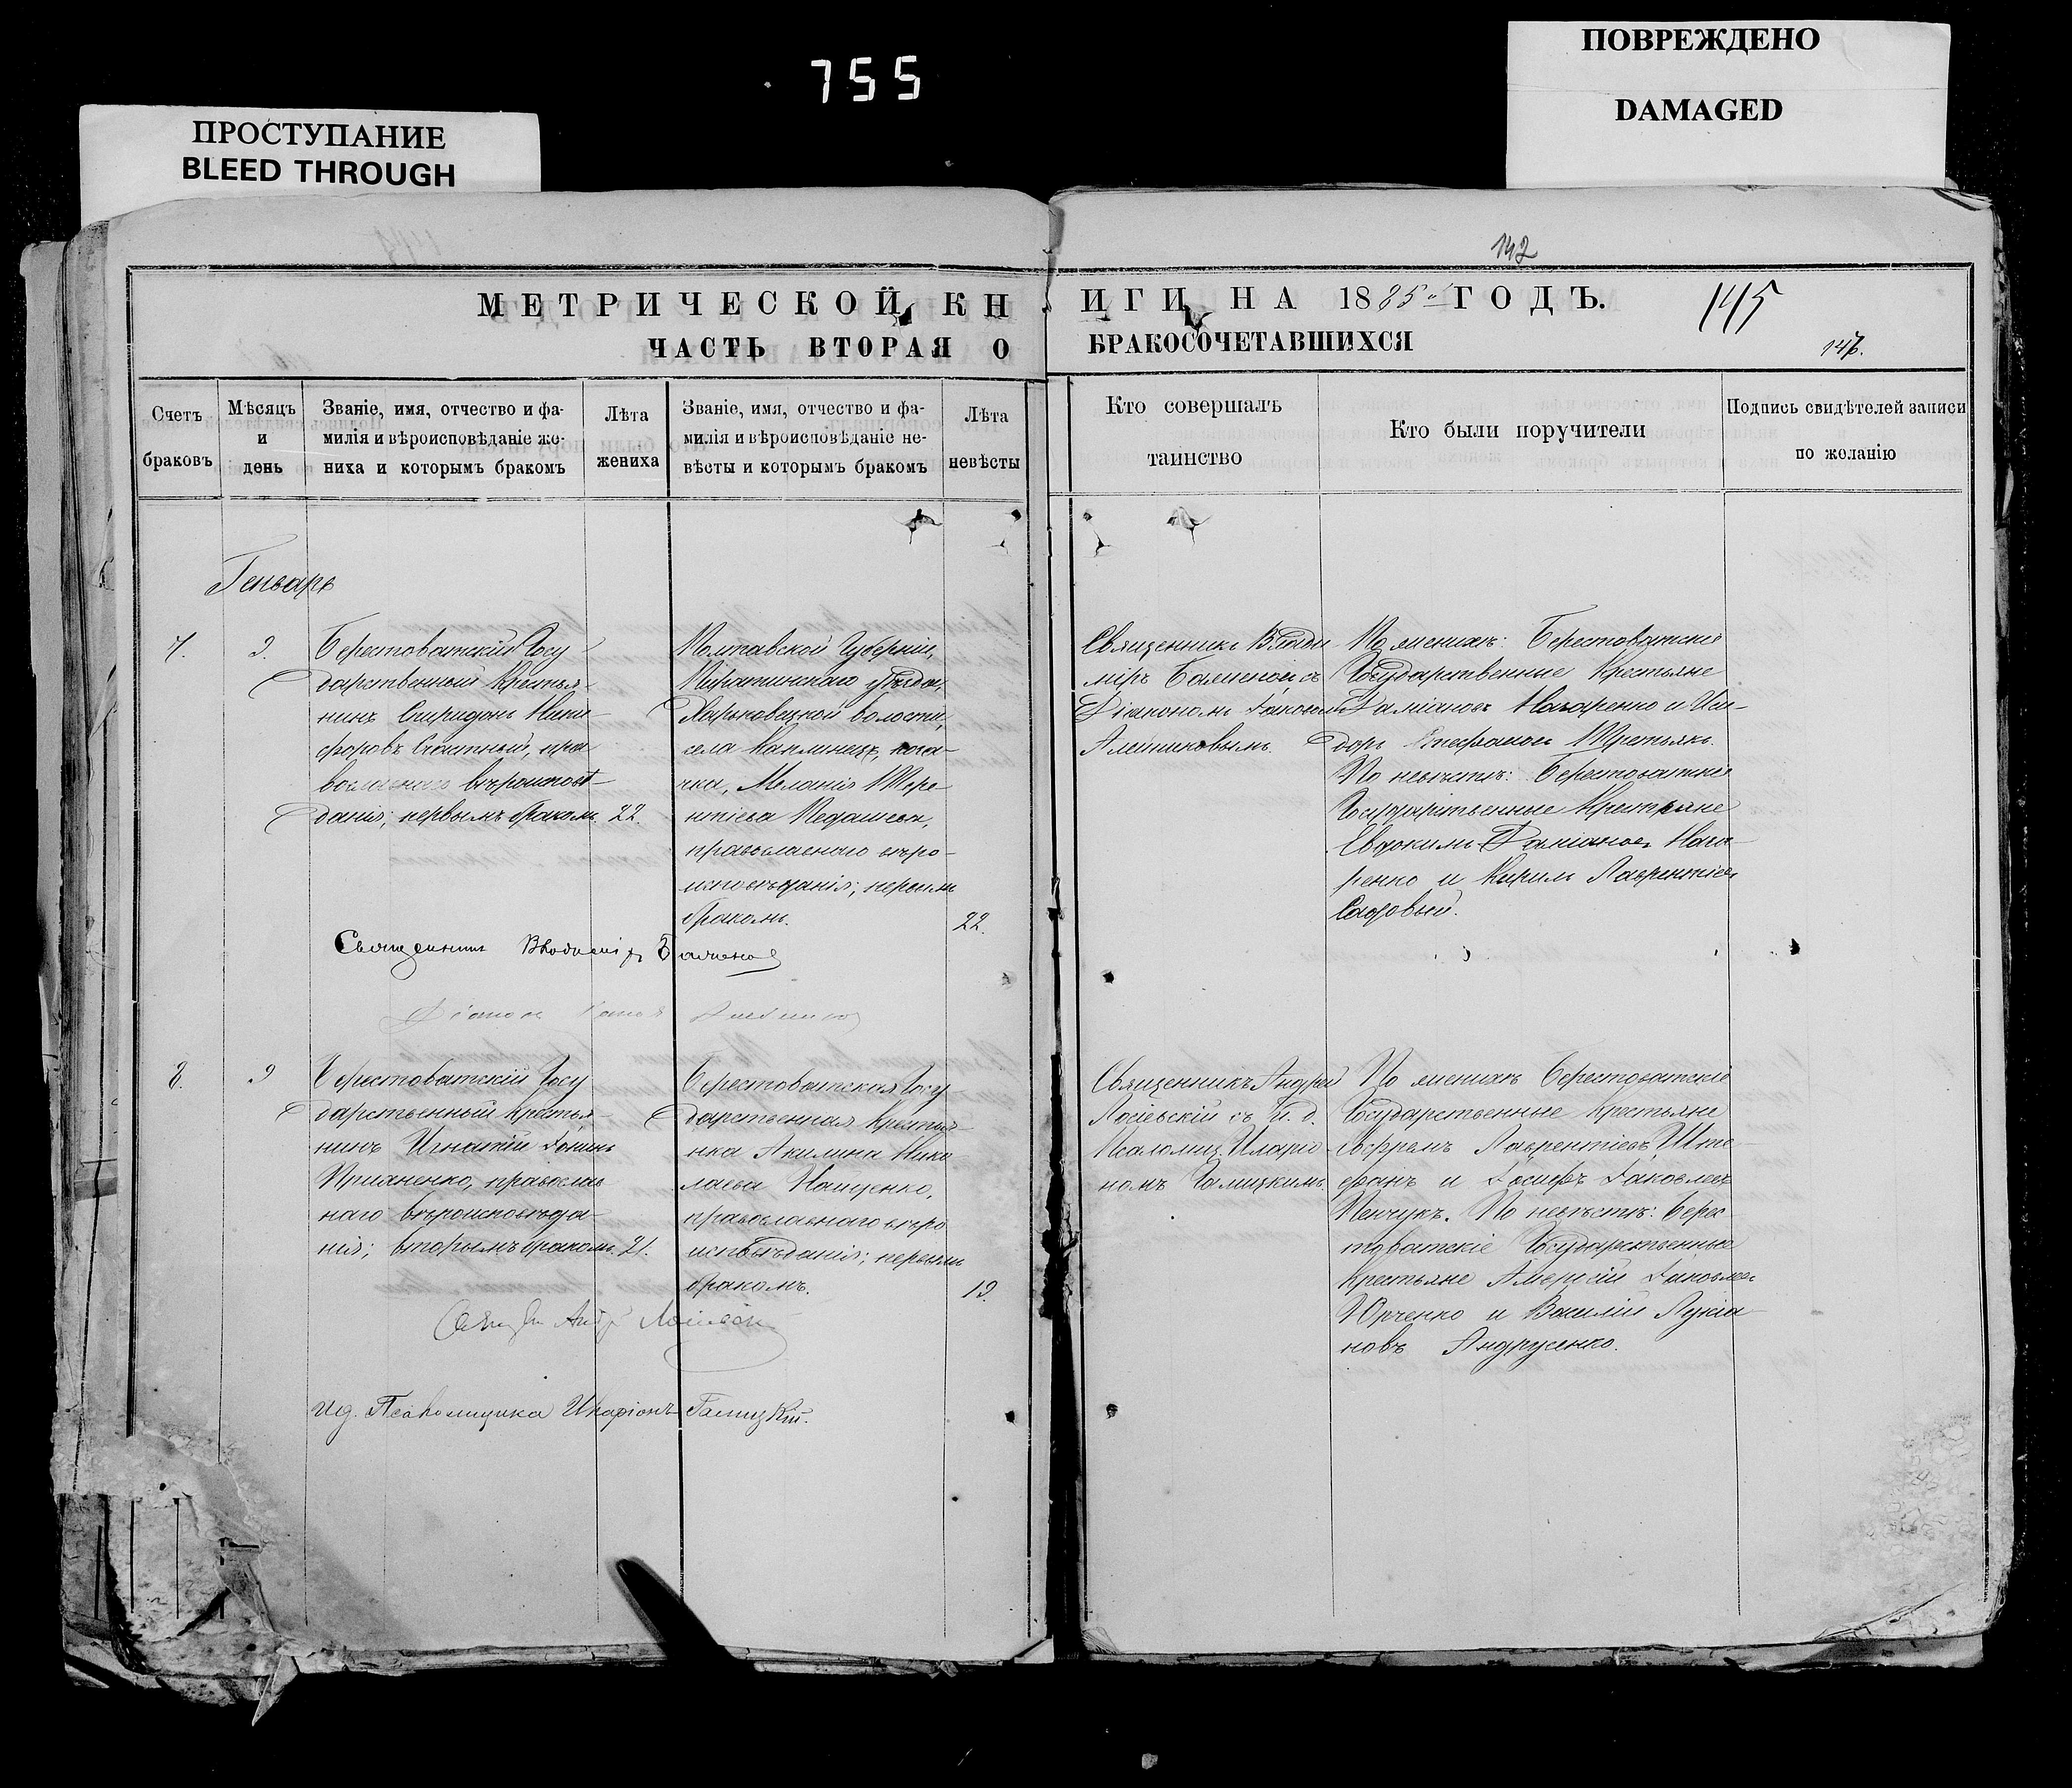 755
ПОВРЕЖДЕНО
DAMAGED
ПРОСТУПАНИЕ
BLEED THROUGH
142
МЕТРИЧЕСКОЙ КНИГИ НА 1885й ГОДЪ.
145
ЧАСТЬ ВТОРАЯ О БРАКОСОЧЕТАВШИХСЯ
Счетъ
браковъ
Мѣсяцъ
и
день
Званіе, имя, отчество и фа-
милія и вѣроисповѣданіе же-
ниха и которымъ бракомъ
Лѣта
жениха
Званіе, имя, отчество и фа-
милія и вѣроисповѣданіе не-
вѣсты и которымъ бракомъ
Лѣта
невѣсты
Кто совершалъ
таинство
Кто были поручители
Подпись свидѣтелей записи
по желанію
Геньварь
7.
9.
Берестоватскій Госу-
дарственный Крестья-
нинъ Спиридонъ Ники-
форовъ пра-
вославнаго вѣроисповѣ-
данія; первымъ бракомъ.
22.
Полтавской Губерніи,
Пирятинскаго уѣзда,
Харьковецкой волости,
села Каплинецъ, коза-
чка, Меланія Тере-
нтіева
православнаго вѣро-
исповѣданія; первымъ
бракомъ.
22.
Священникъ Влади-
міръ съ
Діакономъ Іаковомъ
Алейниковымъ.
По женихѣ: Берестоватскіе
Государственные Крестьяне
Даміановъ Назаренко и Иси-
доръ Стефановъ Третьякъ.
По невѣстѣ: Берестоватскіе
Государственные Крестьяне
Евдокимъ Даміановъ Наза-
ренко и Кирилъ Лаврентіевъ
Садовый.
Священникъ Владиміръ
Діаконъ Іаковъ
8.
9
Берестоватскій Госу-
дарственный Крестья-
нинъ Игнатій Іоиль
Прияненко, православ-
наго вѣроисповѣда-
нія; вторымъ бракомъ.
21.
Берестоватская Госу-
дарственная Крестья-
нка Акилина Нико-
лаева Нащенко,
православнаго вѣро-
исповѣданія; первымъ
бракомъ.
19.
Священникъ Андрей
Лосіевскій съ и. д.
Псаломщ. Иларіо-
номъ Галицкимъ
По женихѣ Берестоватскіе
Государственные Крестьяне
Ефремъ Лаврентіевъ Ште-
фанъ и Іосифъ Іаковлевъ
Пенчукъ. По невѣстѣ: Берес-
товатскіе Государственные
Крестьяне Алексій Іаковлевъ
Юрченко и Василій Лукіа-
новъ Андрусенко.
ид. Псаломщика Иларіонъ Галицкій.